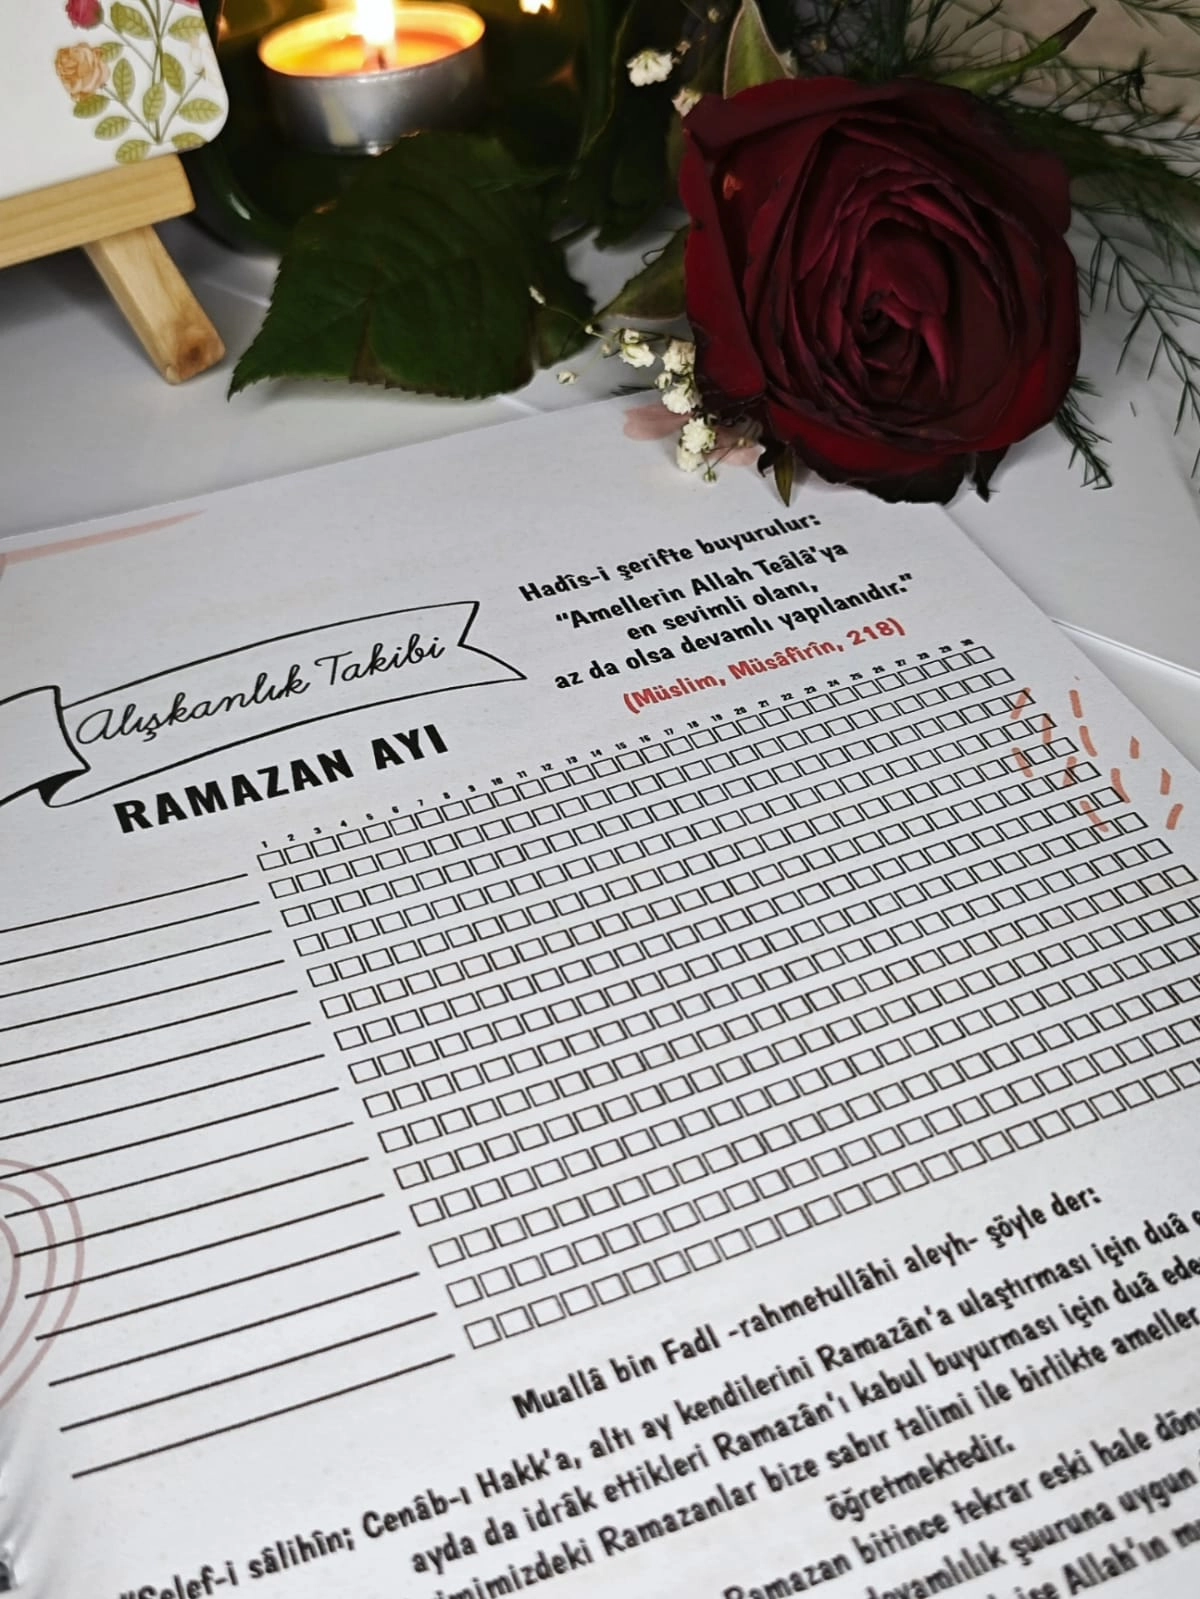 Hadîs-i şerifte buyurulur:
"Amellerin Allah Teâlâ'ya
en sevimli olanı,
az da olsa devamlı yapılanıdır."
(Müslim, Müsâfirîn, 218)
Alışkanlık Takibi
RAMAZAN AYI
1 2 3 4 5 6 7 8 9 10 11 12 13 14 15 16 17 18 19 20 21 22 23 24 25 26 27 28 29 30
Muallâ bin Fadl -rahmetullâhi aleyh- şöyle der:
"Selef-i sâlihîn; Cenâb-ı Hakk'a, altı ay kendilerini Ramazân'a ulaştırması için duâ
ayda da idrâk ettikleri Ramazân'ı kabul buyurması için duâ
Ramazanlar bize sabır talimi ile birlikte ameller
öğretmektedir.
Ramazan bitince tekrar eski hale
devamlılık şuuruna uygun
ise Allah'ın